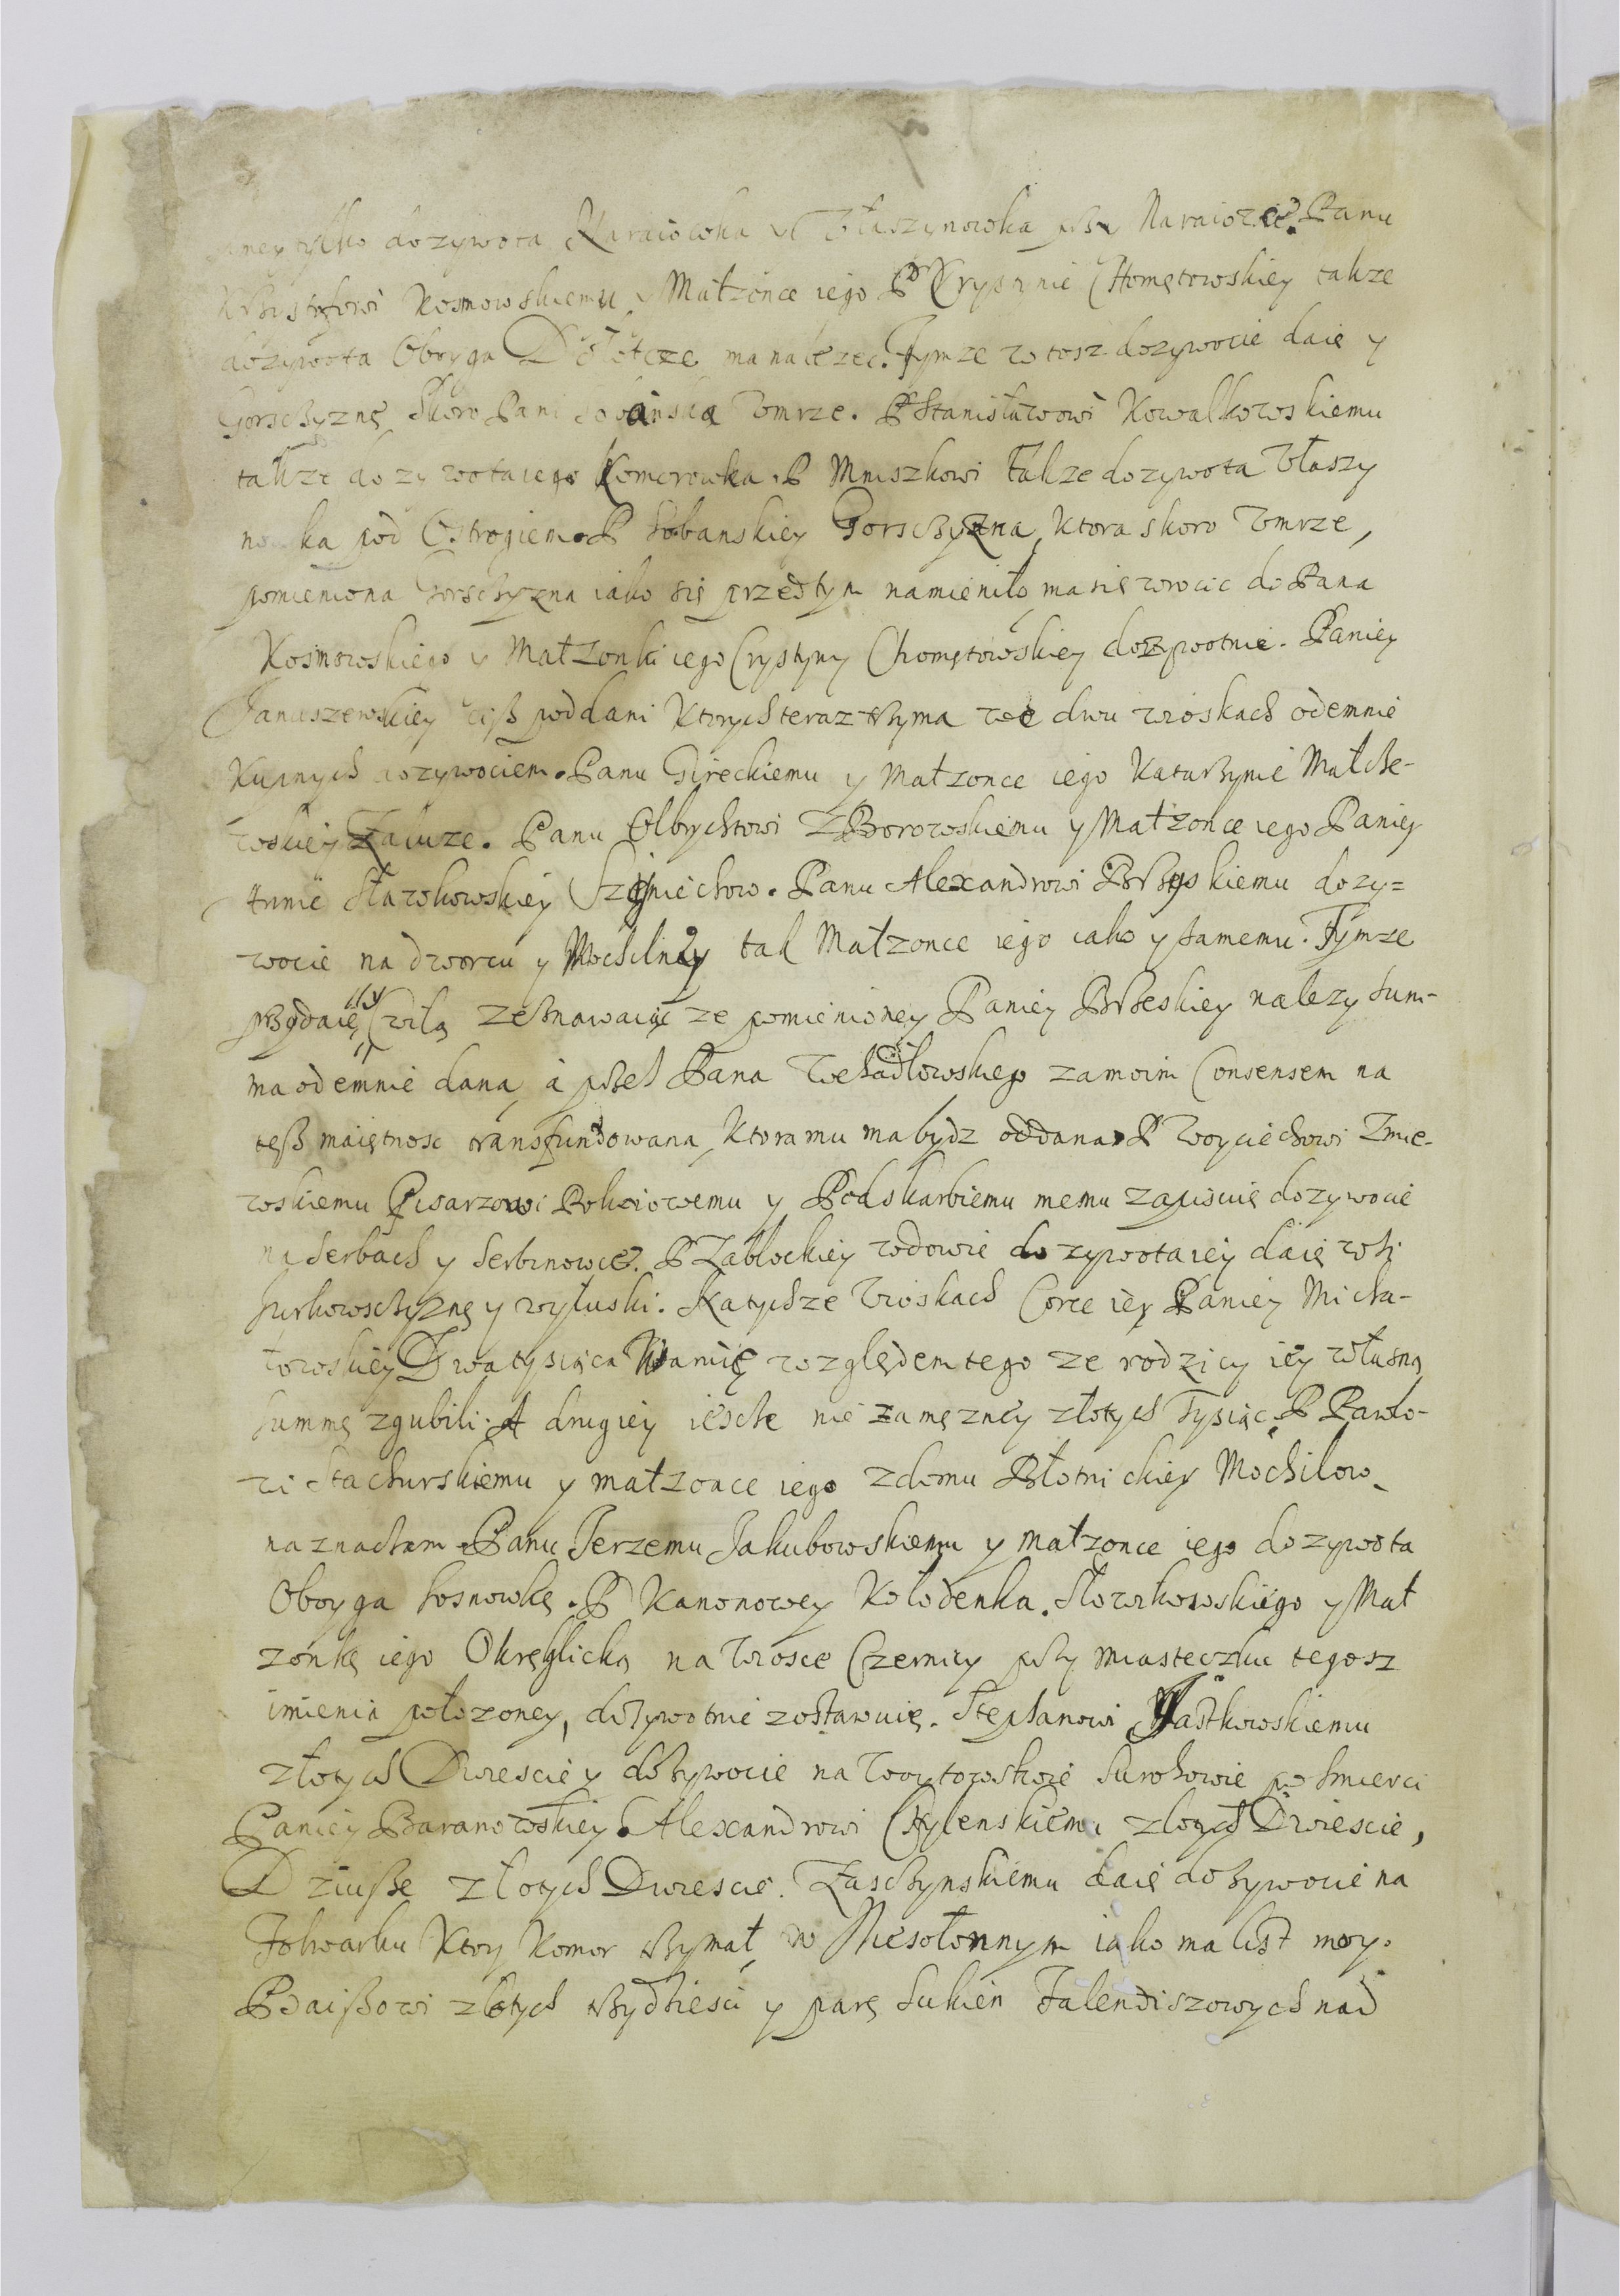 tylko dozywota Naraiowka y Błaszynowka przy Naraiowce. Panu
Krzysztofowi Kosmowskiemu y Małzonce iego P. Crystynie Chomętowskiey takze
dozywota Oboyga Dołotcze ma nalezec. Tymze w tosz dozywocie daię y
Gorsczyznę skoro Pani Sobanska Vmrze. P Stanisławowi Kowalkowskiemu
takze do zywota iego Komorowka. P Mniszkowi takze dozywota Błaszy
nowka pod Ostrogiem. P Sobanskiey Gorsczyzna, ktora skoro Vmrze,
pomieniona Gorsczyzna iako się przedtym namieniło ma się wrocic do Pana
Kosmowskiego y Małzonki iego Crystyny Chomętowskiey dozywotnie. Paniey
Januszewskiey ciż poddani ktorych teraz trzyma we dwu wioskach odemnie
Kupnych dozywociem. Panu Gireckiemu y małzonce iego Katarzynie Małcze-
wskiey Załuze. Panu Olbrychtowi Zborowskiemu y Małzonce iego Paniey
Annie Sławkowskiey Sieniechow. Panu Alexandrowi Brzeskiemu dozy=
wocie na dworcu y Mochilney tak Małzonce iego iako y samemu. Tymze
przydaię Cwilą zeznawaiąc ze pomienioney Paniey Brzeskiey nalezy Sum-
ma odemnie dana, a przez Pana Wesadłowskiego za moim Consensem na
tęsz maiętnosc transfundowana, ktora mu ma bydz oddana. P Woyciechowi Zmie-
wskiemu Pisarzowi Pokoiowemu y Podskarbiemu memu zapiscię dozywocie
na Serbach y Serbinowce. P Zabłockiey wdowie do zywota iey daię wsi
Surkowsczyznę y wyłuski. Na tychze Wioskach Corce iey Paniey Micha-
łowskiey Dwa tysiąca względem tego ze rodzicy iey własną
summę zgubili. A drugiey iescze nie zamęzney złotych Tysiąc. P Pawło-
wi Stachurskiemu y małzonce iego z domu Błotnickiey Mochilow
naznaczam. Panu Jerzemu Jakubowskiemu y małzonce iego dozywota
Oboyga Sosnowkę. P Kanonowey Kołodenka. Słowikowskiego y Mał
zonkę iego Okręglicką na Wiosce Czernicy przy miasteczku tegosz
imienia połozoney, dozywotnie zostawuię. Stephanowi Jastkowskiemu
złotych Dwiescie y dozywocie na Woytowstwie Surozowie po smierci
Paniey Baranowskiey. Alexandrowi Czylenskiemu złotych Dwiescie,
Dziusze złotych Dwiescie. Zasczynskiemu daię dozywocie na
Folwarku ktory Komor trzymał, w Niesołonnym iako ma list moy.
Pdaiszowi złotych trzydziesci y parę sukien Falendiszowych nad